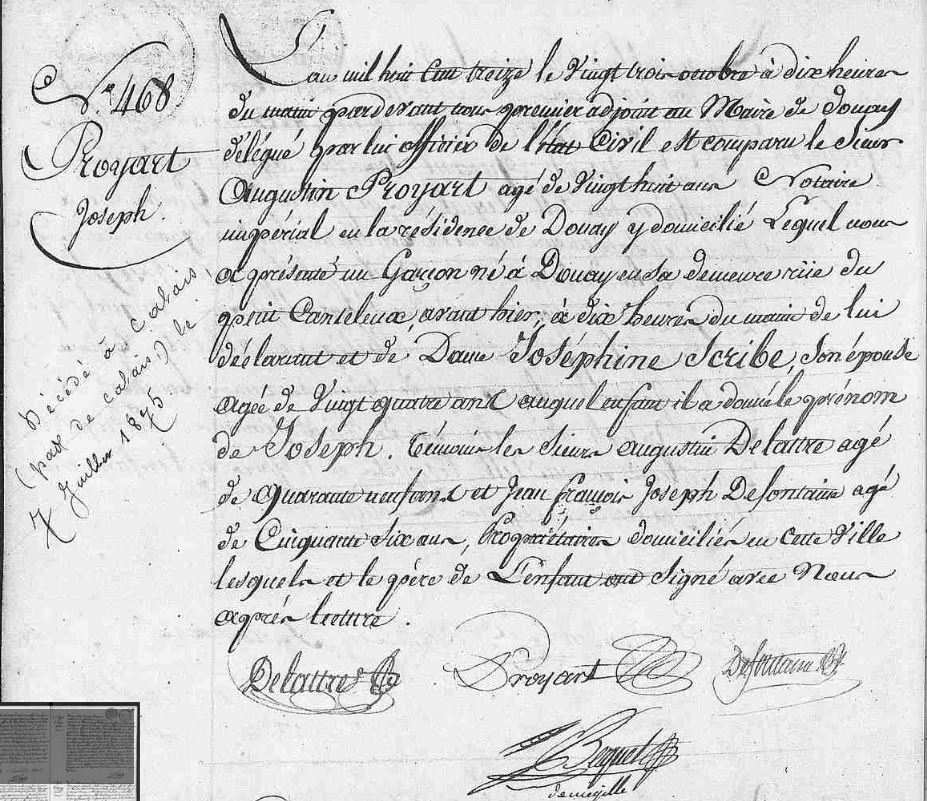 N.° 468
Proyart
Joseph.
Décédé à Calais
(pas de calais) le
7 Juillet 1875.
L'an mil huit Cent treize le Vingt trois octobre à dix heures
du matin pardevant nous premier adjoint au Maire de Douay
délégué par lui officier de l'Etat Civil est comparu le Sieur
Augustin Proyart agé de Vingt huit ans Notaire
impérial en la résidence de Douay y domicilié Lequel nous
a présenté un Garçon né à Douay en Sa demeure rue du
petit Canteleux, avant hier, à dix heures du matin de lui
déclarant et de Dame Joséphine Scribe, Son épouse
agée de Vingt quatre ans auquel enfant il a donné le prénom
de Joseph. témoins les Sieurs augustin Delattre agé
de quarante neuf ans et Jean françois Joseph Defontaine agé
de Cinquante Six ans, Propriétaires domiciliés en cette Ville
lesquels et le père de L'enfant ont Signé avec Nous
après lecture.
Delattre Proyart Defontaine
Bequet
demégille